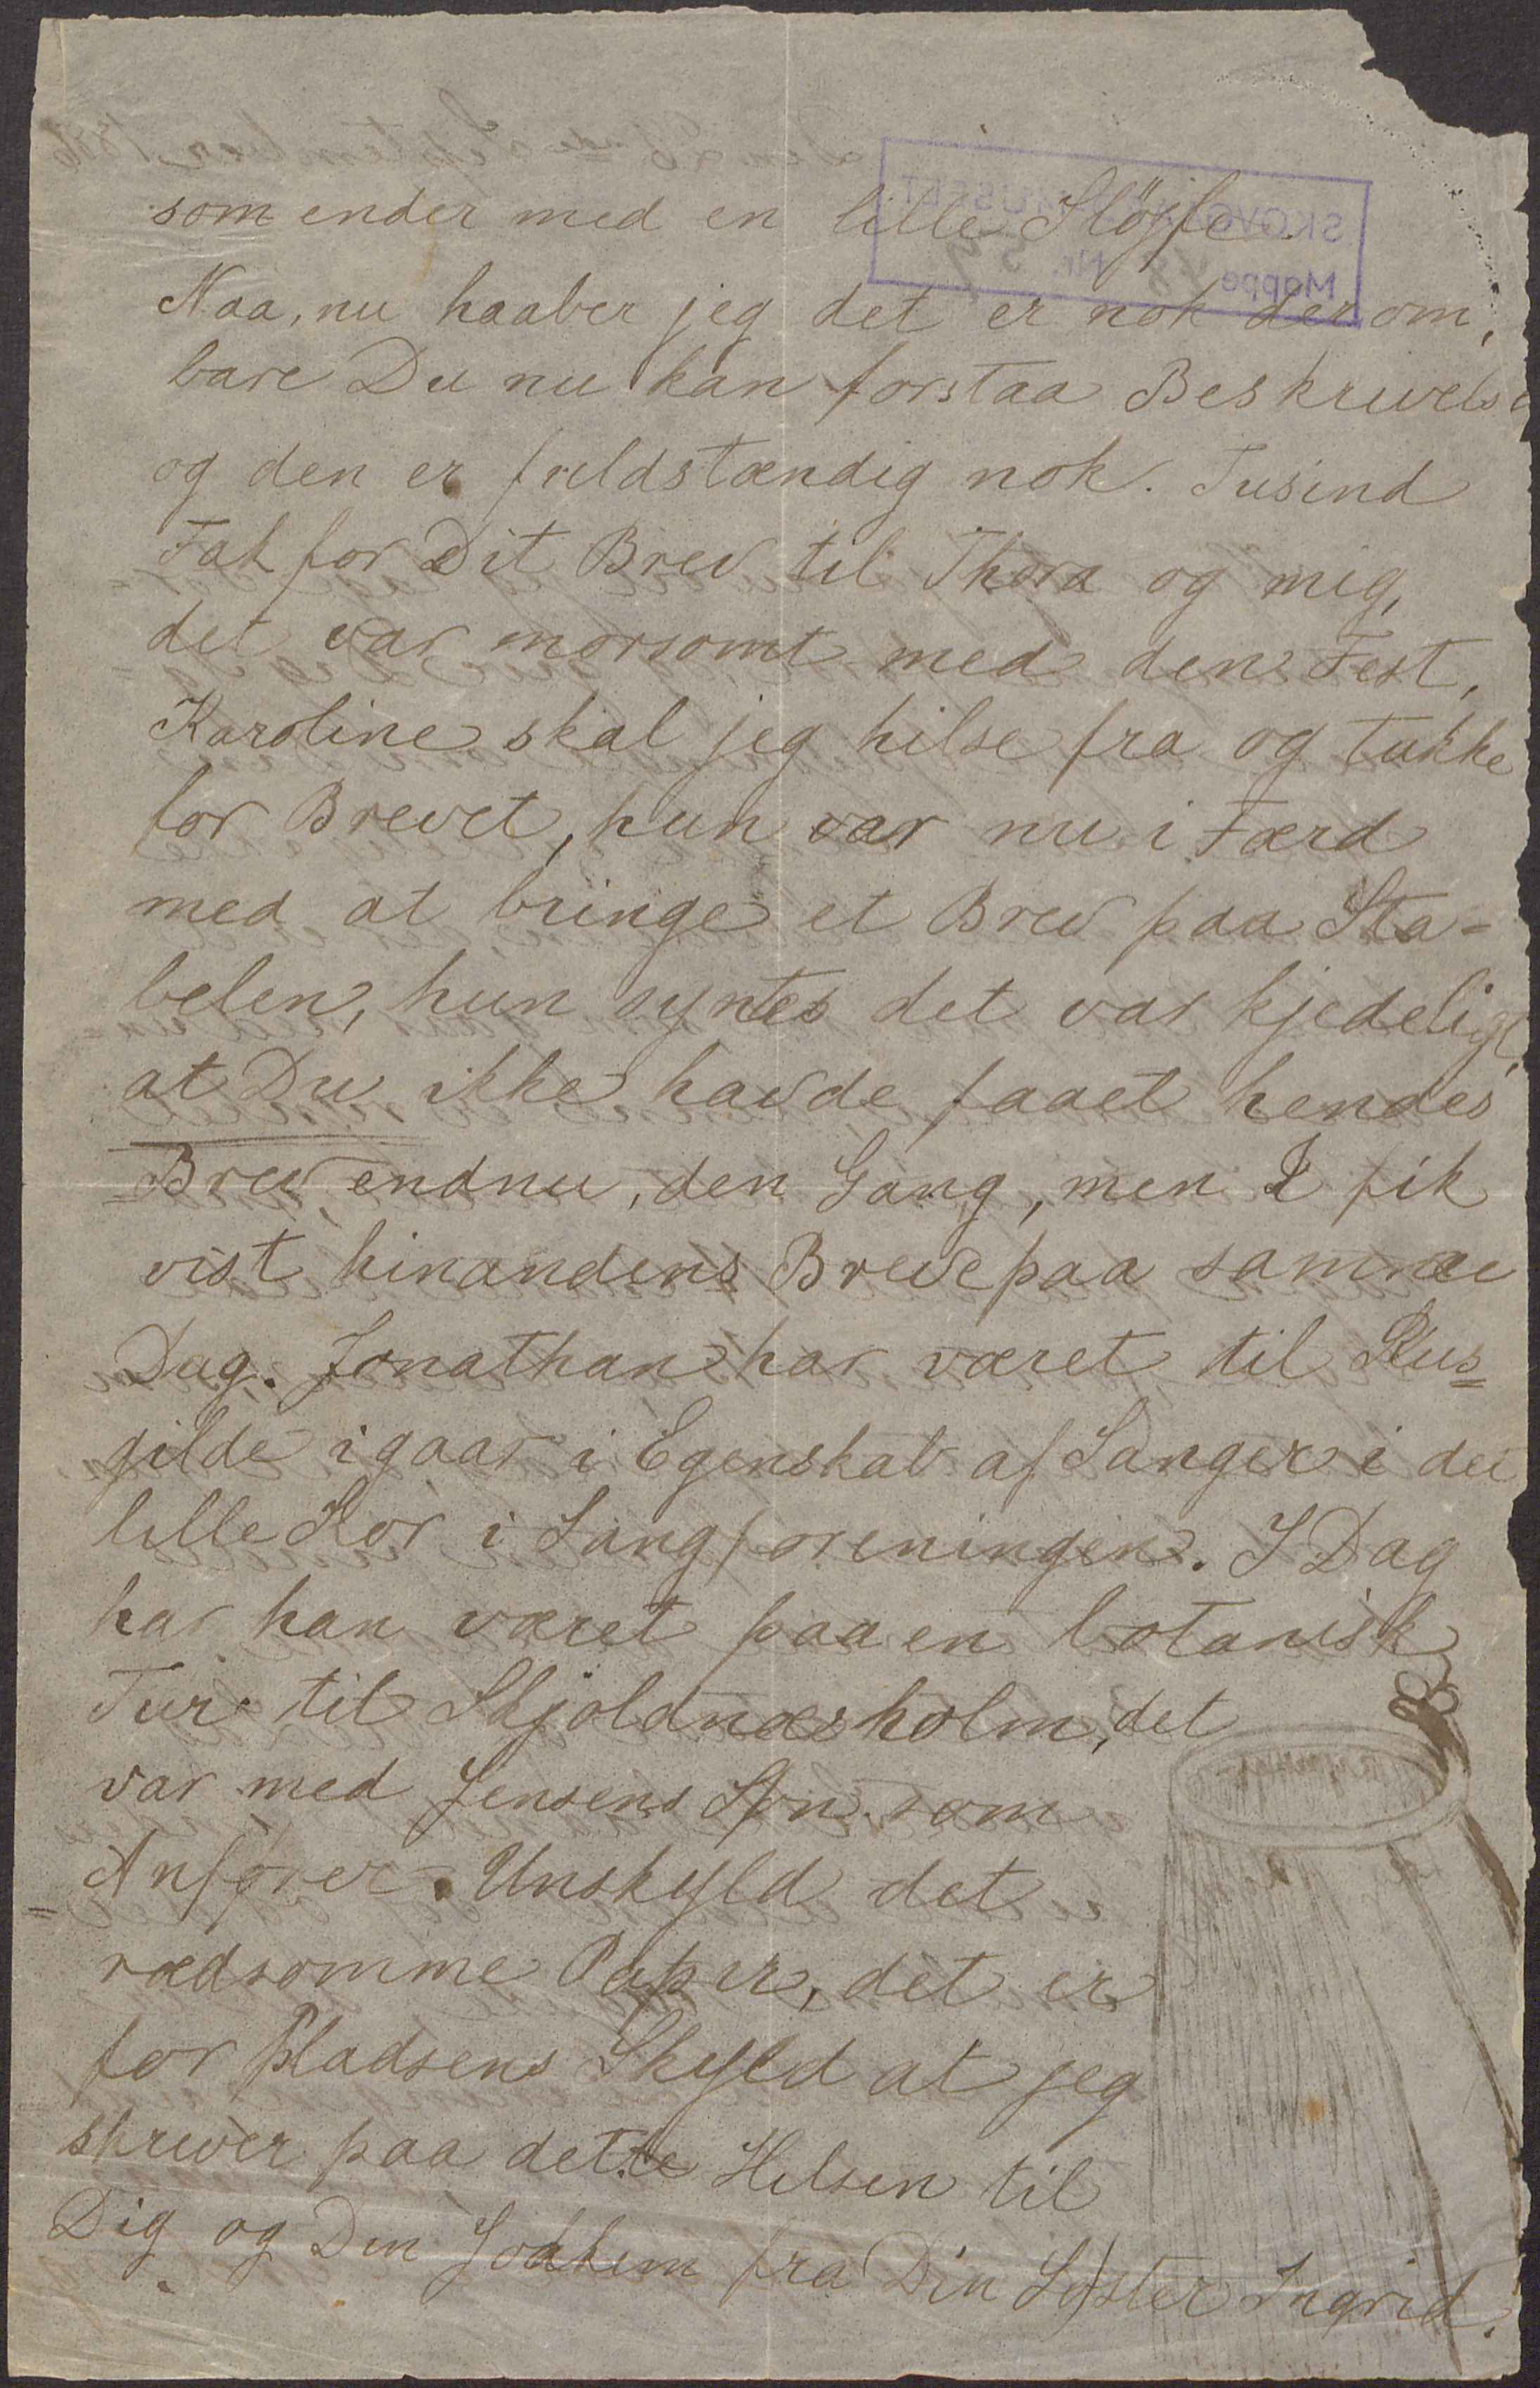 som ender med en lille Sløjfe.
Naa, nu haaber jeg det er nok derom,
bare Du nu kan forstaa Beskrivelse
og den er fuldstændig nok. Tusind
Tak for Dit Brev til Thora og mig,
det var morsomt med den Fest,
Karoline skal jeg hilse fra og takke
for Brevet, hun var nu i Færd
med at bringe et Brev paa Sta=
belen, hun syntes det var kjedeligt,
at Du ikke havde faaet hendes
Brev endnu, den Gang, men I fik
vist hinandens Breve paa samme
Dag. Jonathan har været til
gilde igaar i Egenskab af Sanger i det
lille Kor i Sangforeningen. I Dag
har han været paa en botanisk
Tur til Skjoldnæsholm, det
var med Jensens Søn som
Anfører. Unskyld det
rædsomme Papir, det er
for Pladsens Skyld at jeg
skriver paa dette Hilsen til
Dig og Din Joakim fra Din Søster Ingrid.